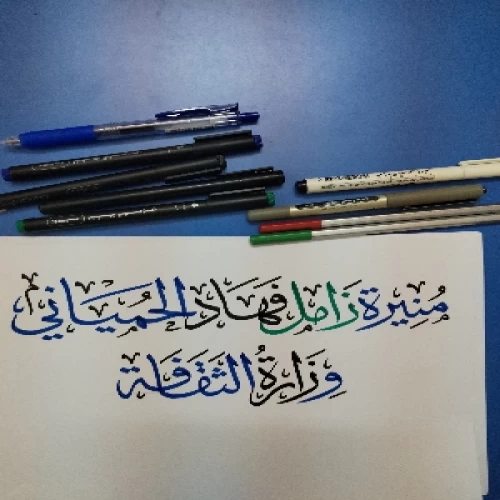 مُنِيرة زَامل فَهَاد الحُميَاني
وِزَارةُ الثَقَافَة